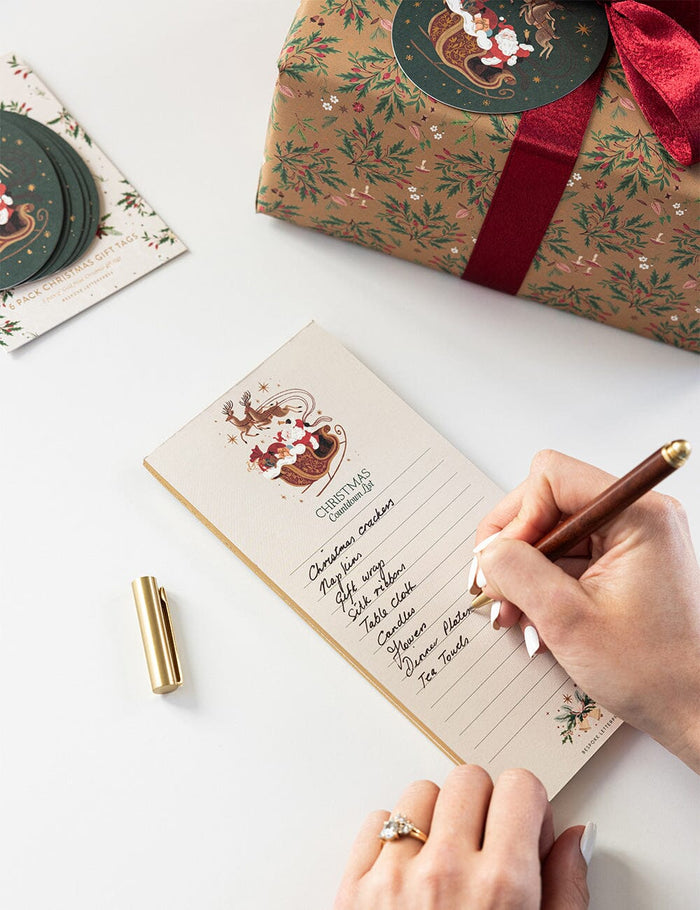 6 PACK CHRISTMAS GIFT TAGS
BESPOKE LETTERPRESS
CHRISTMAS
Countdown List
Christmas crackers
Napkins
Gift wrap
Silk ribbons
Table cloth
Candles
flowers
Dinner Plates
Tea Towels
BESPOKE LETTERPR